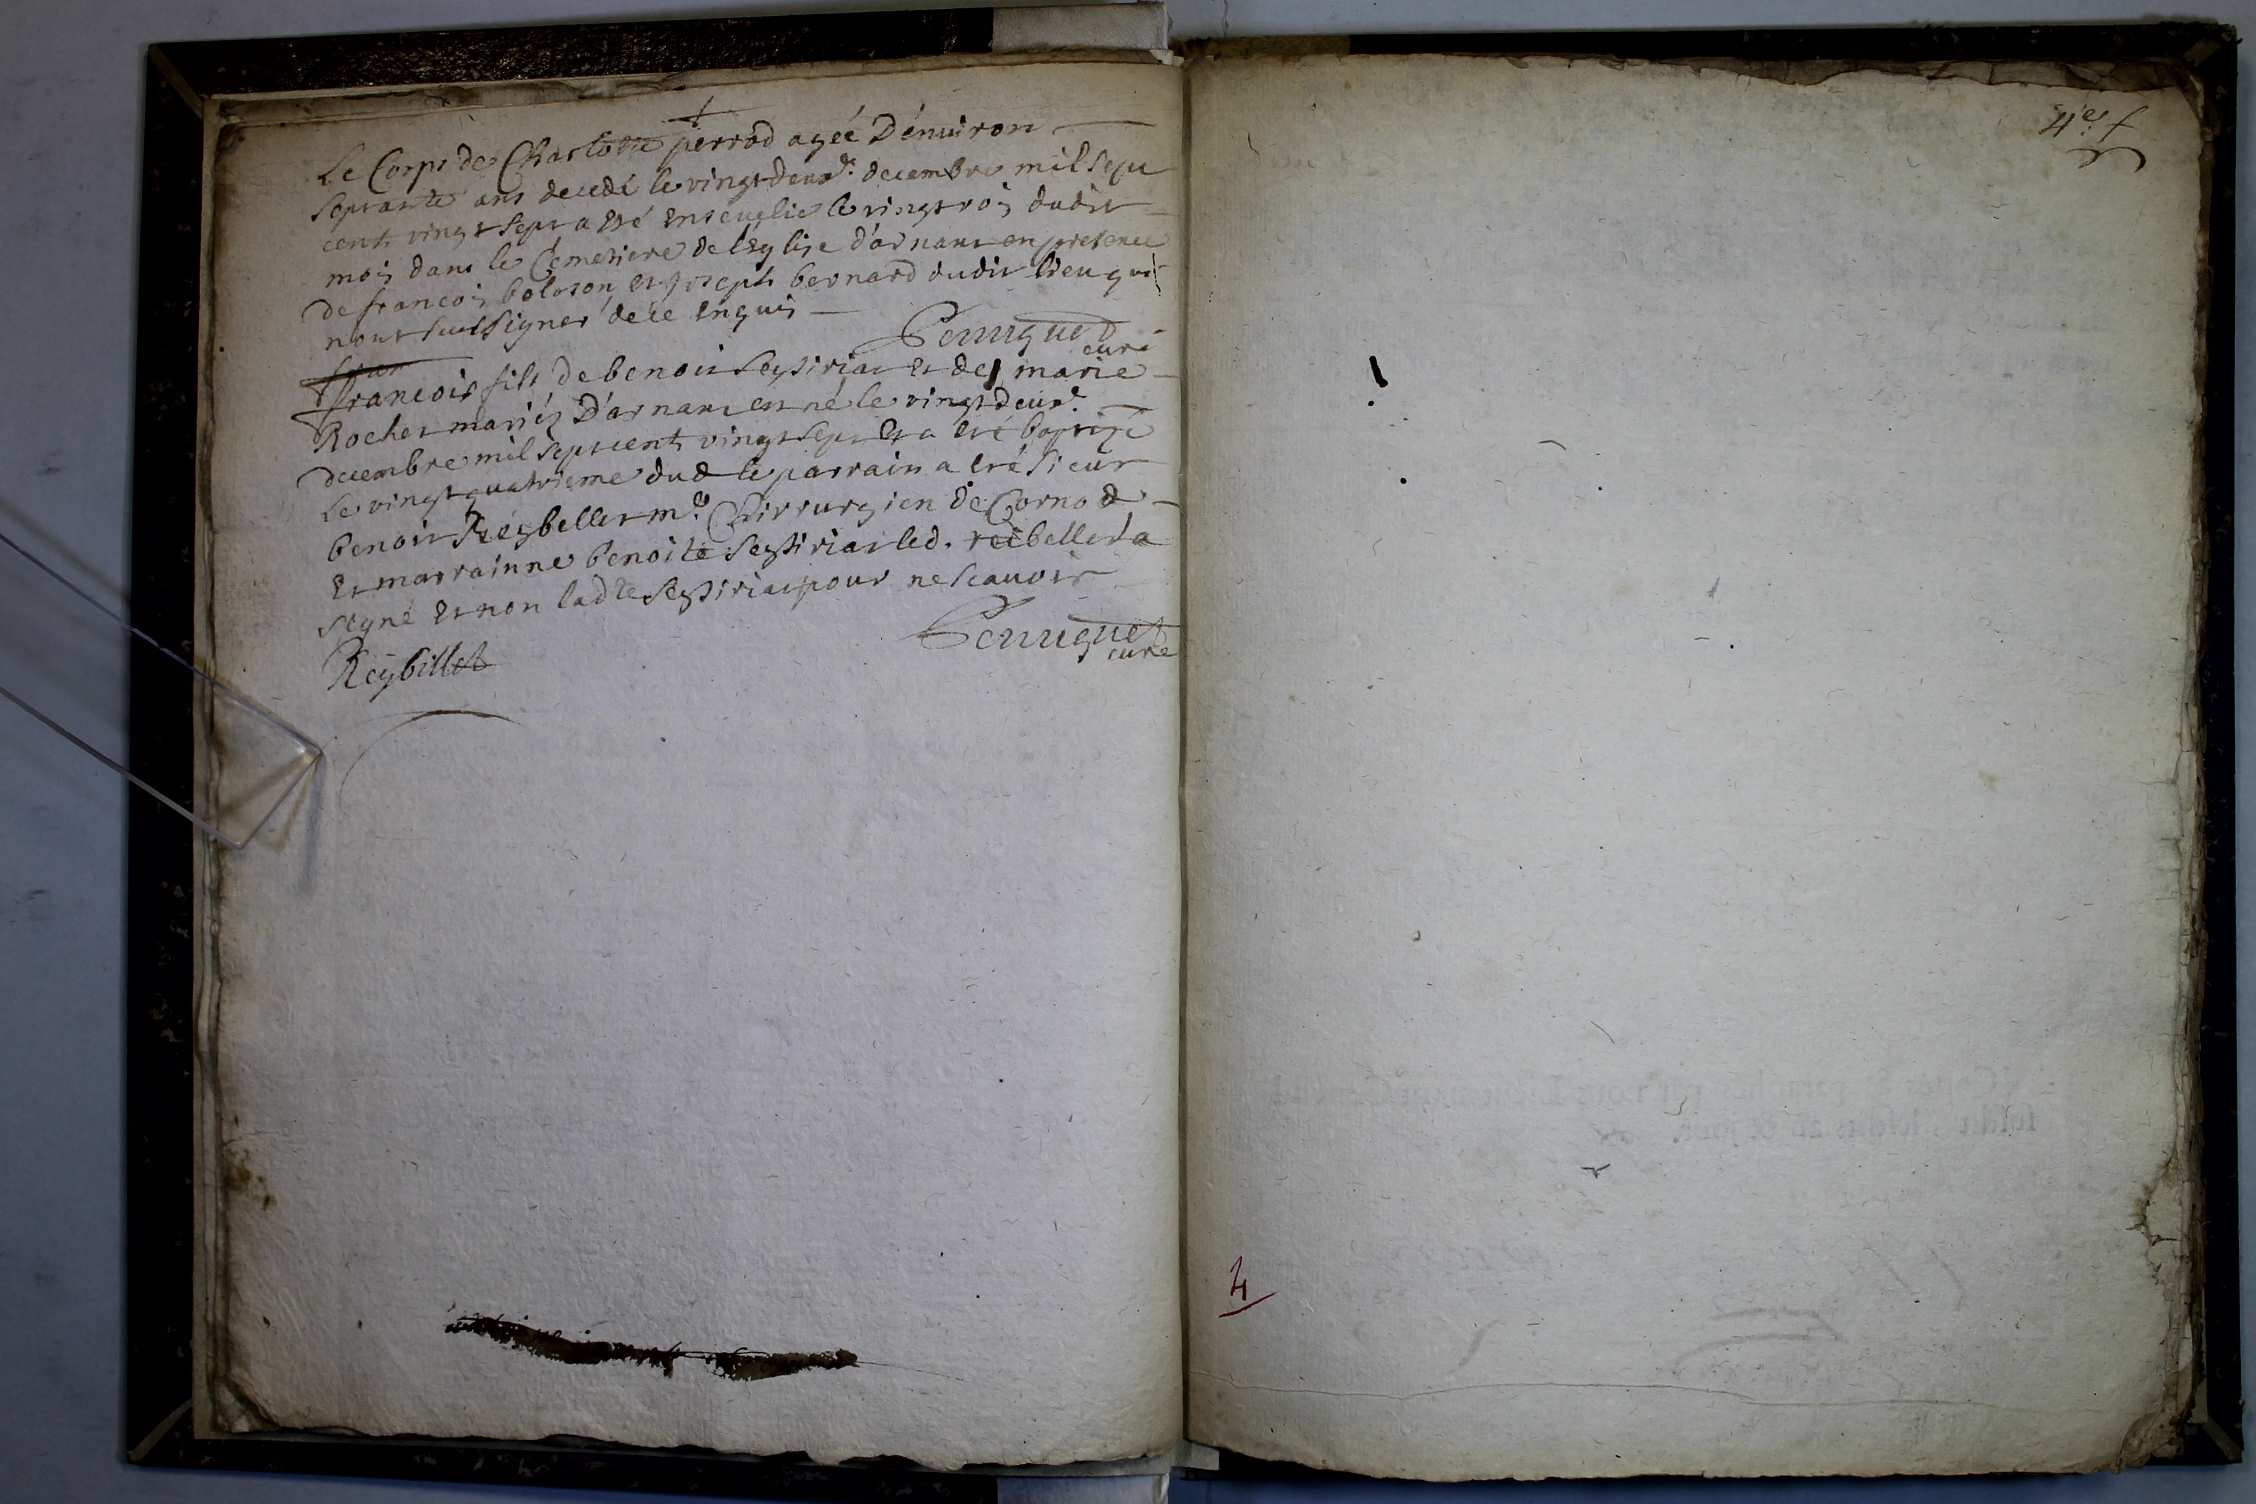 Le Corps de Charlotte perrod agéé D'énuiron
septante ans decedé le vingtdeux.e decembre mil sept
cent vingt sept a été enseuelie le vingtrois dudit
mois dans le Cemetiere de l'Eglise d'arnant en presence
de francois boloson et Joseph bernard dudit lieu qui
n'ont sceu signer de ce enquis
Penuiguet
curé
francois fils de benoit Seytiriat et de marie
Rochet mariéz D'arnant est né le vingtdeux.e
decembre mil sept cent vingt sept et a été baptizé
le vingt quatrieme dud le parrain a été sieur
benoit Reybellet m.e Chirrurgien de Cornod
et marrainne benoite Seytiriat led. reibellet a
signé et non ladte Seytiriat pour ne scauoir
Penuiguet
curé
Reybillet
4.e f
4